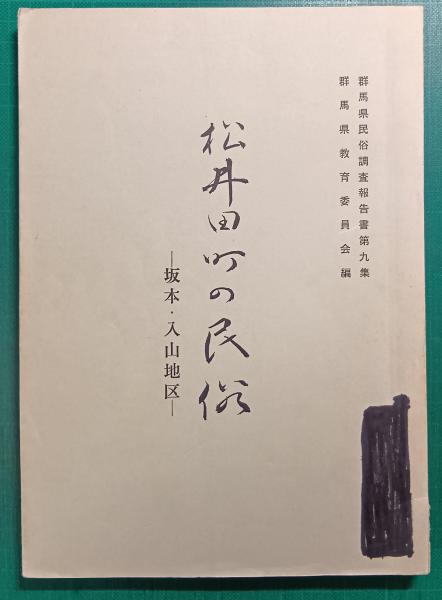 群馬県民俗調査報告書第九集
群馬県教育委員会編
松井田町の民俗
―坂本・入山地区―